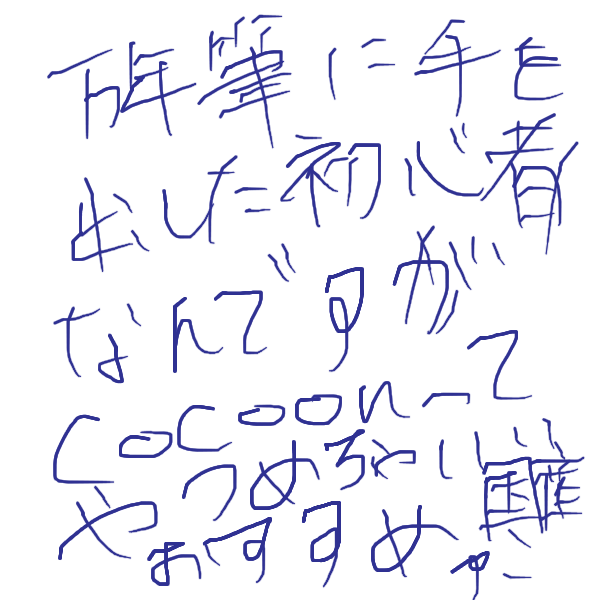 万年筆に手を
出した初心者
なんですが
cocoonって
めちゃいい
やつ
おすすめだ